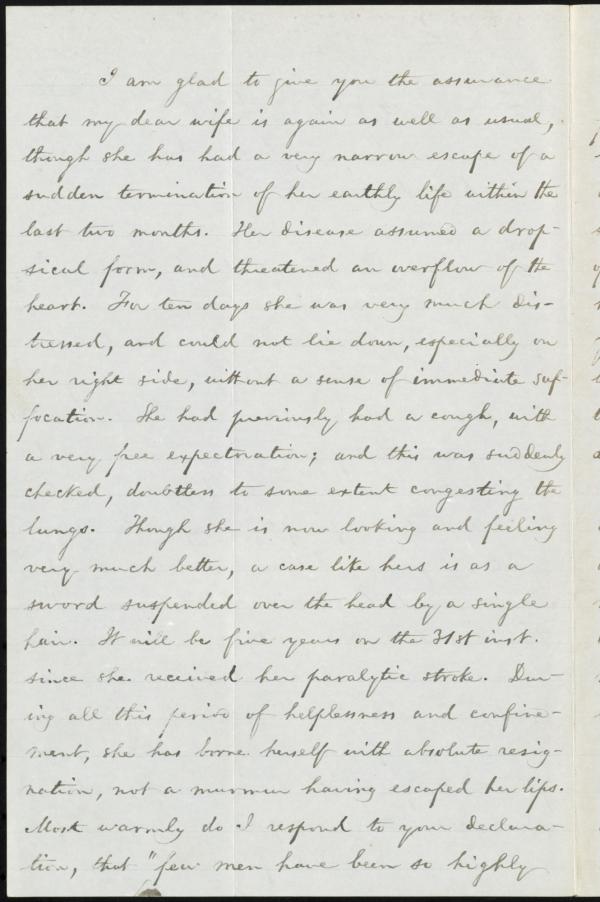 I am glad to give you the assurance
that my dear wife is again as well as usual,
though she has had a very narrow escape of a
sudden termination of her earthly life within the
last two months. Her disease assumed a drop-
sical form, and threatened an overflow of the
heart. For ten days she was very much dis-
tressed, and could not lie down, especially on
her right side, without a sense of immediate suf-
focation. She had previously had a cough, with
a very free expectoration; and this was suddenly
checked, doubtless to some extent congesting the
lungs. Though she is now looking and feeling
very much better, a case like hers is as a
sword suspended over the head by a single
hair. It will be five years on the 31st inst.
since she received her paralytic stroke. Dur-
ing all this period of helplessness and confine-
ment, she has borne herself with absolute resig-
nation, not a murmur having escaped her lips.
Most warmly do I respond to your declara-
tion, that "few men have been so highly